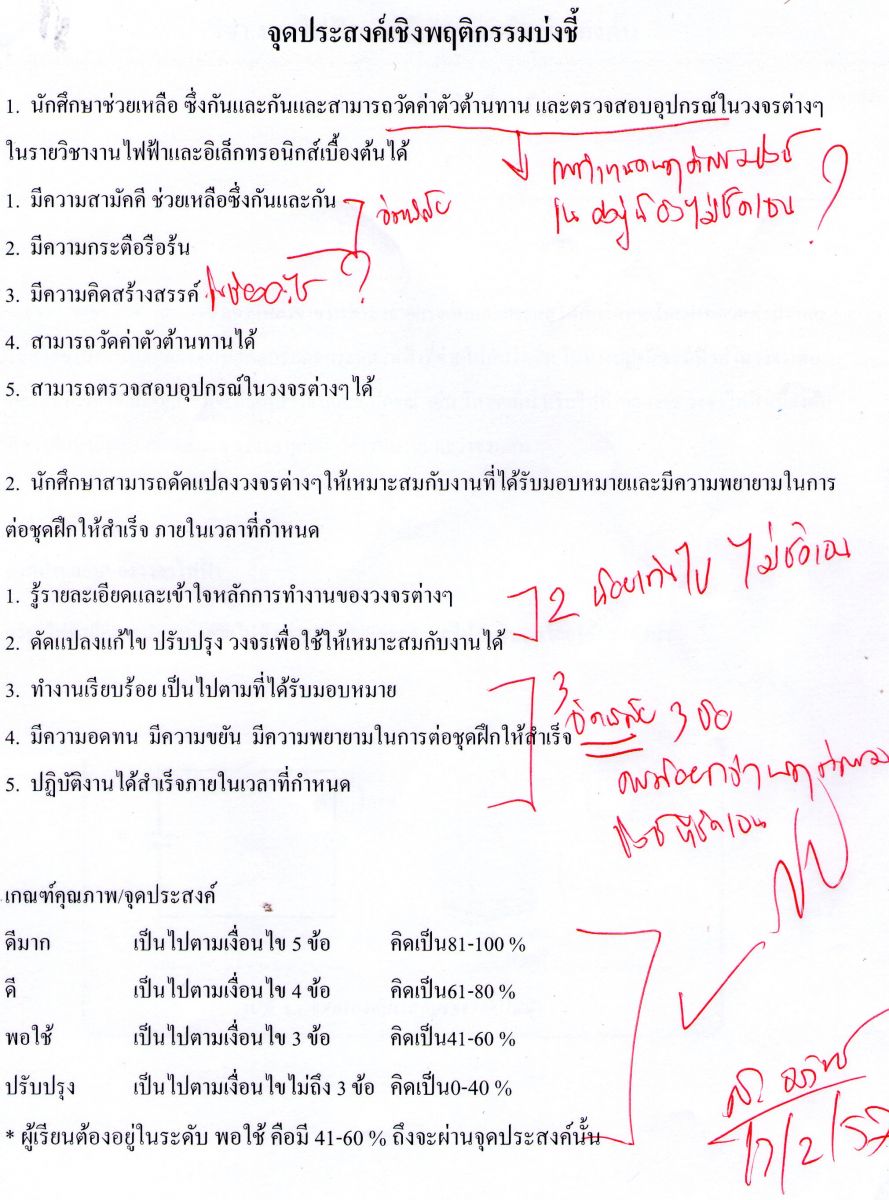 จุดประสงค์เชิงพฤติกรรมบ่งชี้
1. นักศึกษาช่วยเหลือ ซึ่งกันและกันและสามารถวัดค่าตัวต้านทาน และตรวจสอบอุปกรณ์ในวงจรต่างๆ
ในรายวิชางานไฟฟ้าและอิเล็กทรอนิกส์เบื้องต้นได้
1. มีความสามัคคี ช่วยเหลือซึ่งกันและกัน
2. มีความกระตือรือร้น
?
3. มีความคิดสร้างสรรค์
?
4. สามารถวัดค่าตัวต้านทานได้
5. สามารถตรวจสอบอุปกรณ์ในวงจรต่างๆได้
2. นักศึกษาสามารถดัดแปลงวงจรต่างๆให้เหมาะสมกับงานที่ได้รับมอบหมายและมีความพยายามในการ
ต่อชุดฝึกให้สำเร็จ ภายในเวลาที่กำหนด
1. รู้รายละเอียดและเข้าใจหลักการทำงานของวงจรต่างๆ
2 น้อยเกินไป ไม่ชัดเจน
2. ดัดแปลงแก้ไข ปรับปรุง วงจรเพื่อใช้ให้เหมาะสมกับงานได้
3. ทำงานเรียบร้อย เป็นไปตามที่ได้รับมอบหมาย
3
4. มีความอดทน มีความขยัน มีความพยายามในการต่อชุดฝึกให้สำเร็จ
จิตพิสัย 3 ข้อ
5. ปฏิบัติงานได้สำเร็จภายในเวลาที่กำหนด
เกณฑ์คุณภาพ/จุดประสงค์
ดีมาก เป็นไปตามเงื่อนไข 5 ข้อ คิดเป็น81-100 %
ดี เป็นไปตามเงื่อนไข 4 ข้อ คิดเป็น61-80 %
พอใช้ เป็นไปตามเงื่อนไข 3 ข้อ คิดเป็น41-60 %
ปรับปรุง เป็นไปตามเงื่อนไขไม่ถึง 3 ข้อ คิดเป็น0-40 %
* ผู้เรียนต้องอยู่ในระดับ พอใช้ คือมี 41-60 % ถึงจะผ่านจุดประสงค์นั้น
17/2/57